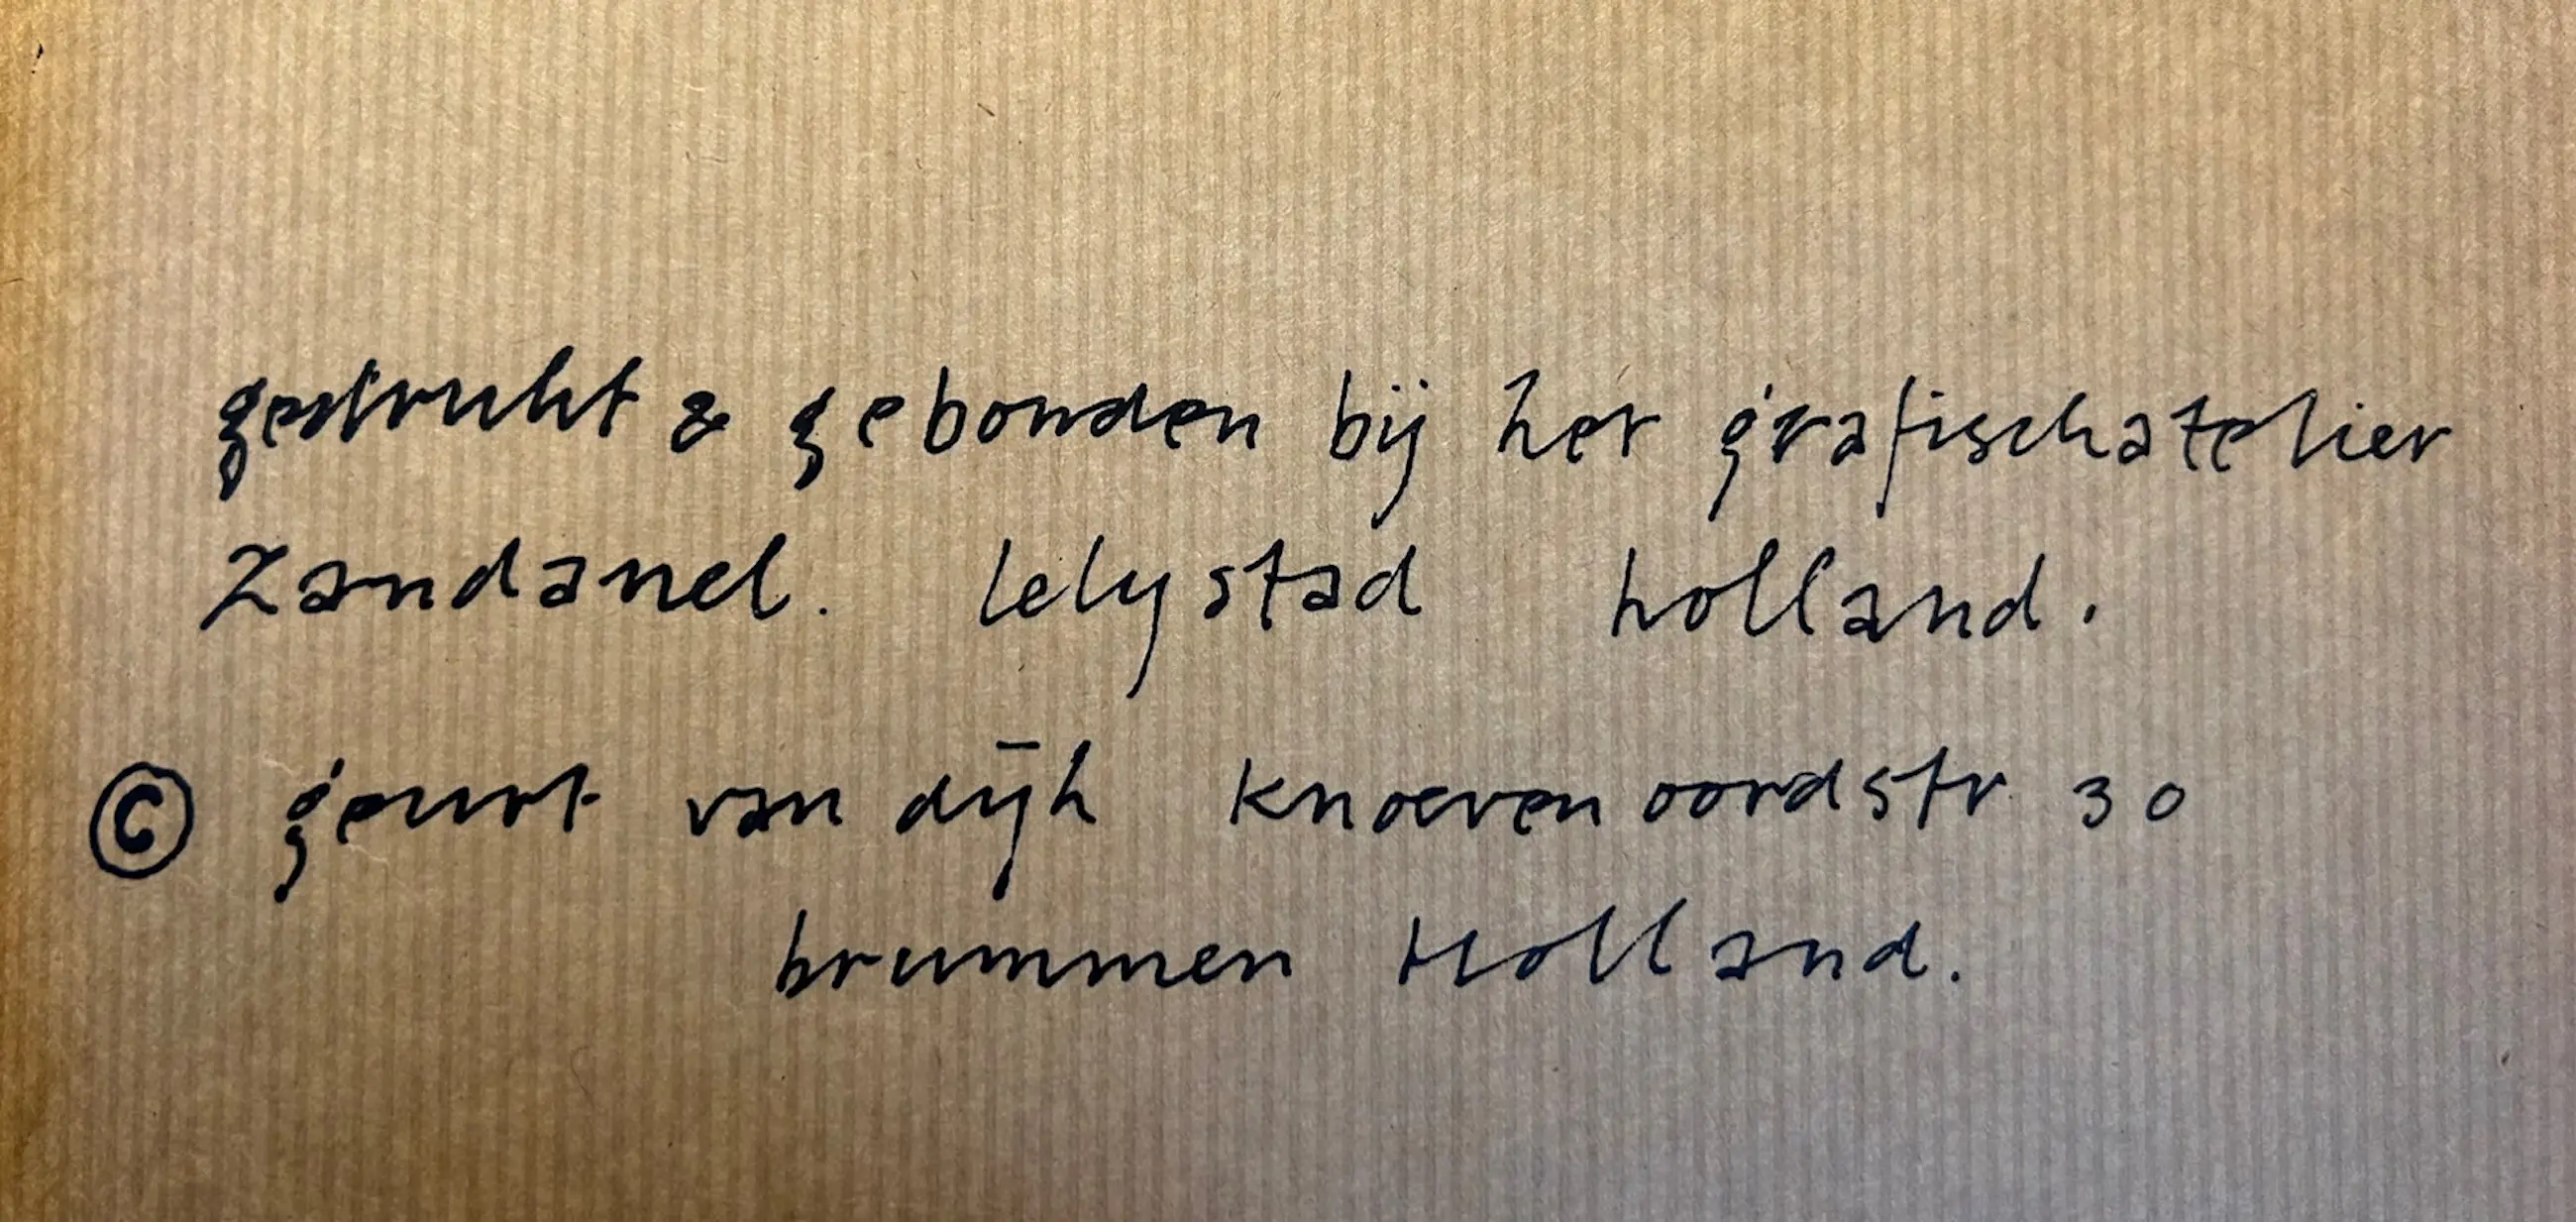 gedrukt & gebonden bij het grafischatelier
Zandanel. lelystad holland.
© geurt van dijk knoevenoordstr 30
brummen Holland.